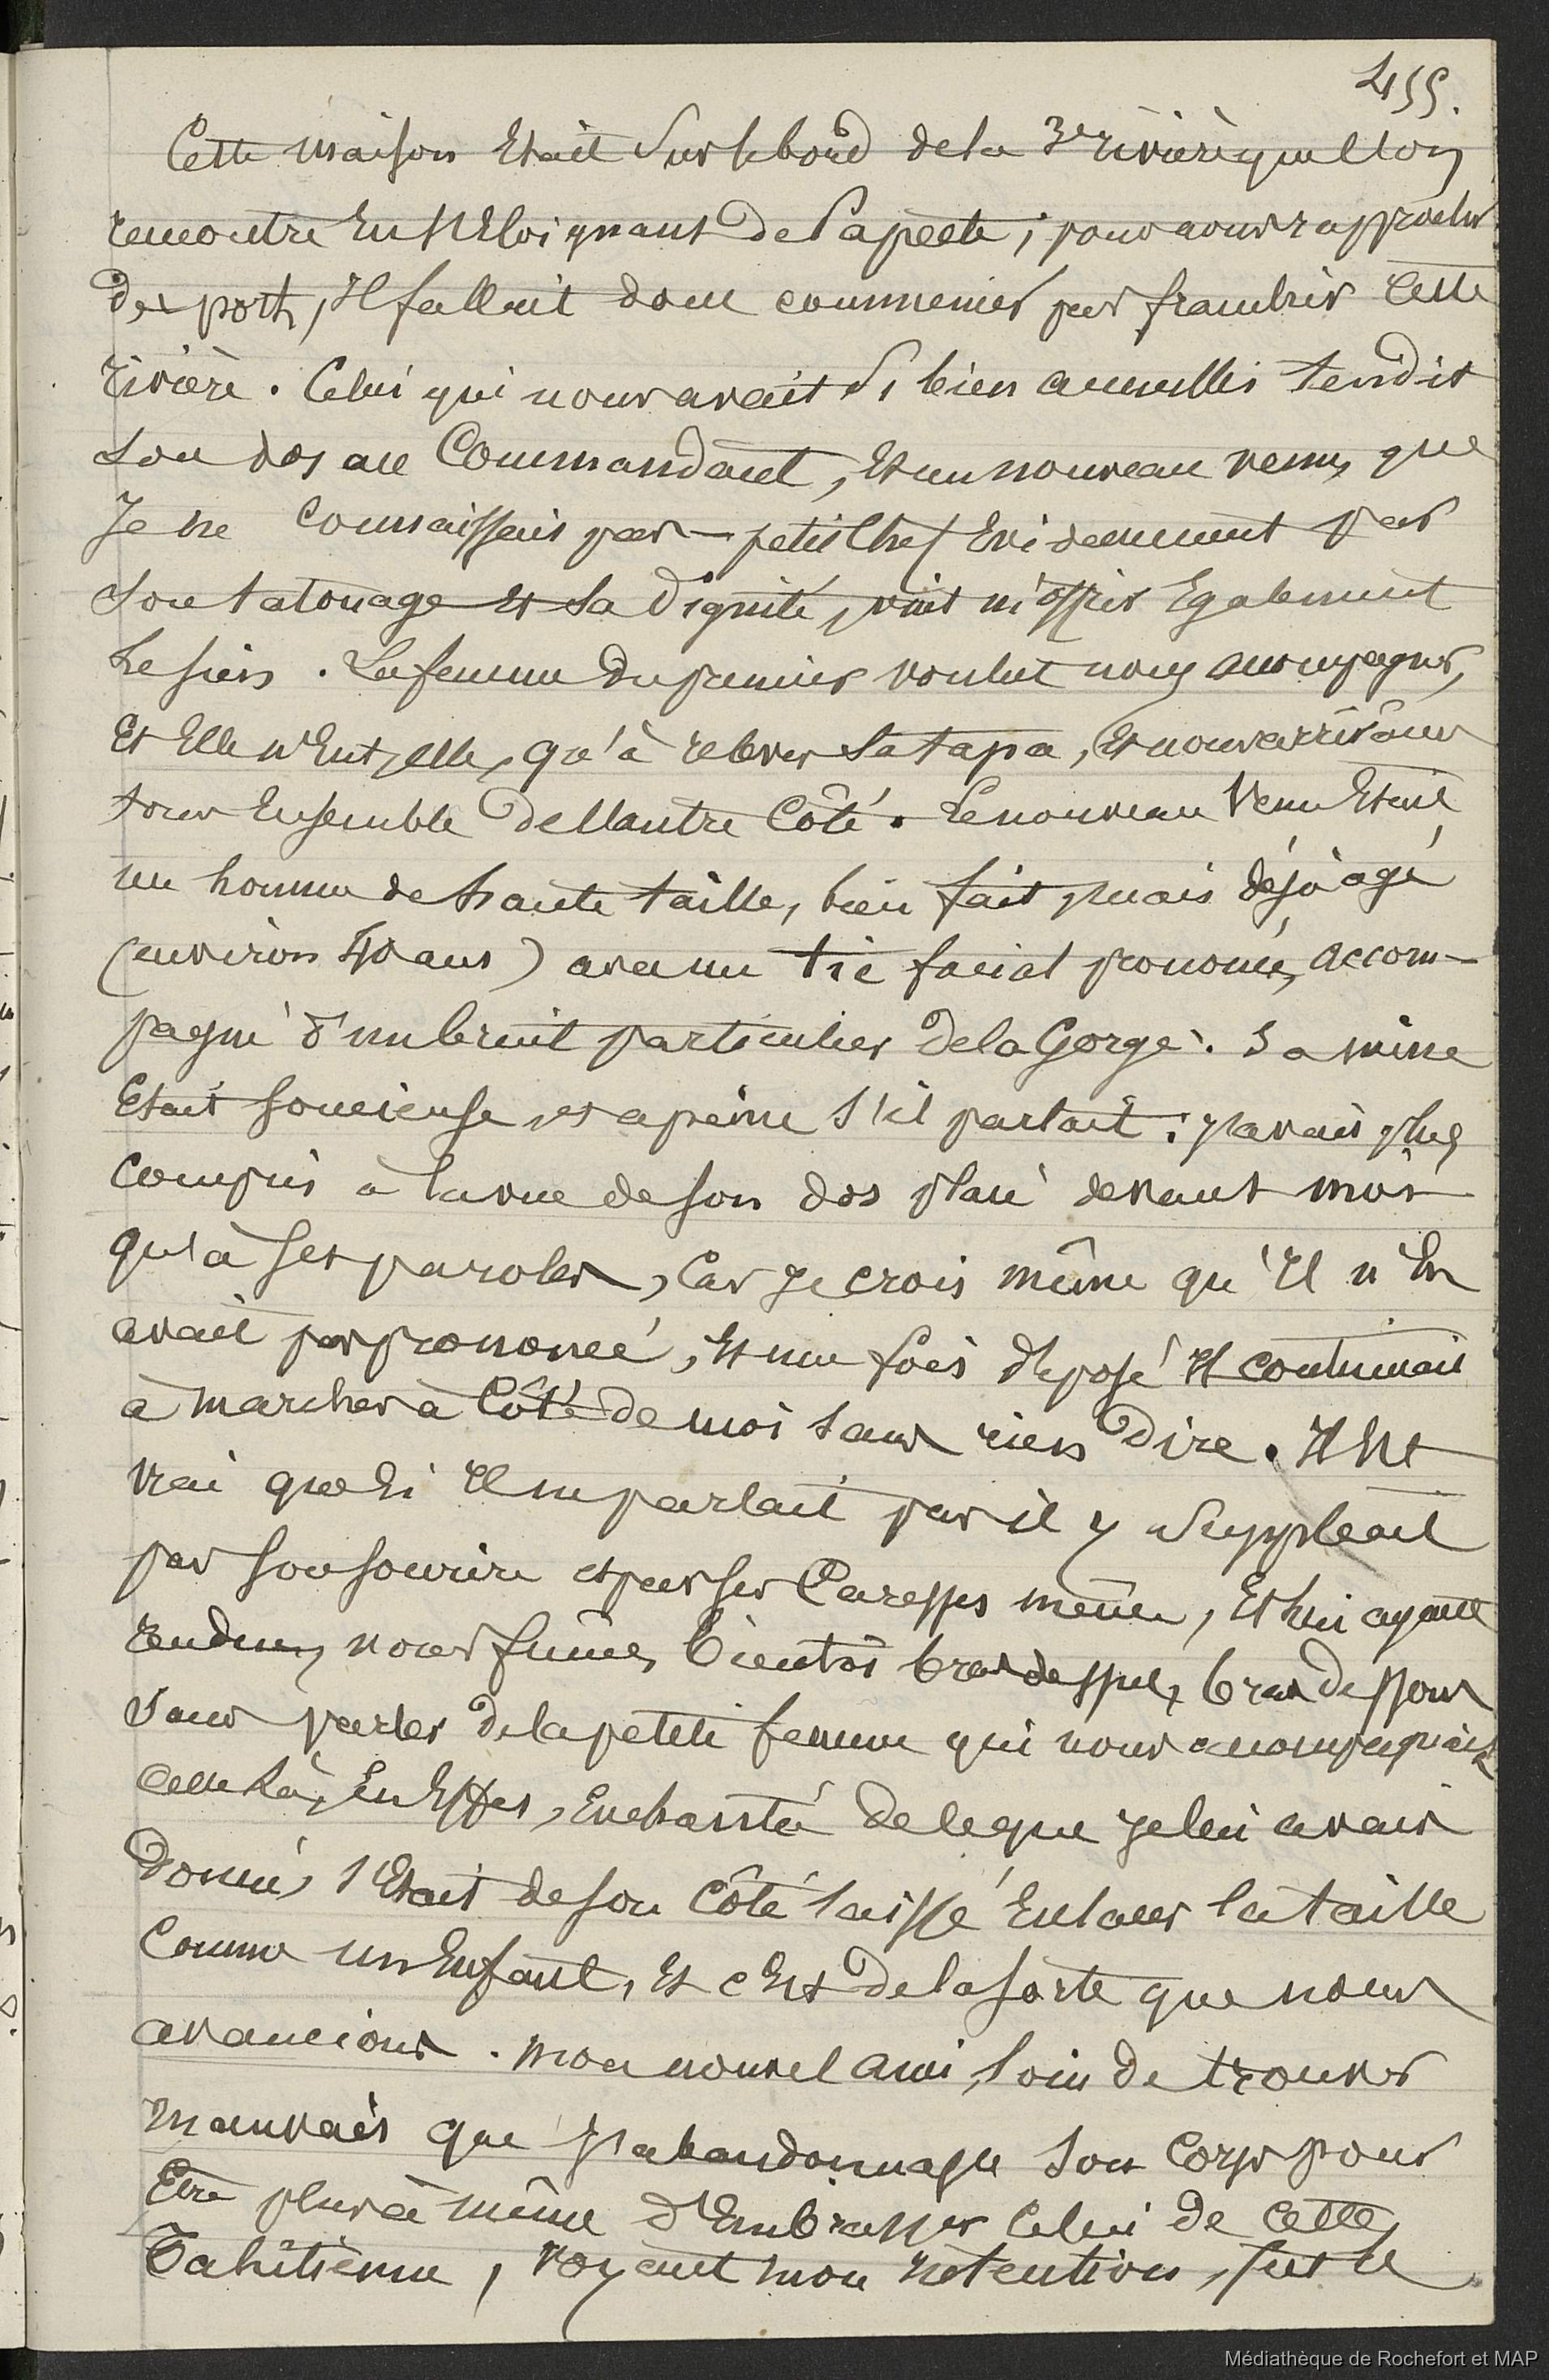 455.
Cette maison Etait sur le bord de la 3e rivière que l'on
rencontre En s'Eloignant de Papeete ; pour nous rapprocher
du port, Il fallait donc commencer par franchir cette
rivière. Celui qui nous avait si bien accueillis tendit
son dos au Commandant, Et un nouveau venu, que
Je ne connaissais pas — petit Chef Evidemment par
son tatouage et sa dignité, vint m'offrir Egalement
le sien. La femme du premier voulut nous accompagner,
Et Elle n'Eut, elle, qu'à relever sa tapa, Et nous arrivâmes
tous Ensemble de l'autre Côté. Le nouveau Venu Etait
un homme de haute taille, bien fait, mais déjà agé
(environ 40 ans) avec un tic facial prononcé, accom-
pagné d'un bruit particulier de la Gorge. Sa mine
Etait soucieuse, et a peine s'il parlait ; j'avais plus
compris à la vue de son dos placé devant moi
qu'à ses paroles, Car Je crois même qu'Il n'En
avait pas prononcé, Et une fois déposé Il continuait
à marcher à Côté de moi sans rien dire. Il Est
vrai que si Il ne parlait pas il y suppléait
par son sourire et par ses Caresses même, Et lui ayant
rendues, nous fûmes bientôt bras dessus, bras dessous
sans parler de la petite femme qui nous accompagnait
celle là, En Effet, Enchantée de ce que Je lui avais
donné, s'Etait de son Côté laissé Enlacer la taille
Comme un Enfant, Et c'Est de la sorte que nous
avancions. mon nouvel ami, loin de trouver
mauvais que j'abandonnasse son Corps pour
Etre plus à même d'Embrasser Celui de cette
Tahitienne, voyant mon intention, fut le
Médiathèque de Rochefort et MAP